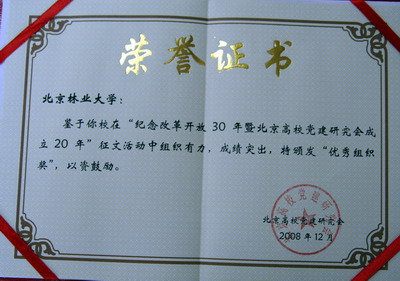 荣誉证书
北京林业大学：
鉴于你校在“纪念改革开放 30 年暨北京高校党建研究会成
立 20 年”征文活动中组织有力，成绩突出，特颁发“优秀组织
奖”，以资鼓励。
北京高校党建研究会
2008 年 12 月